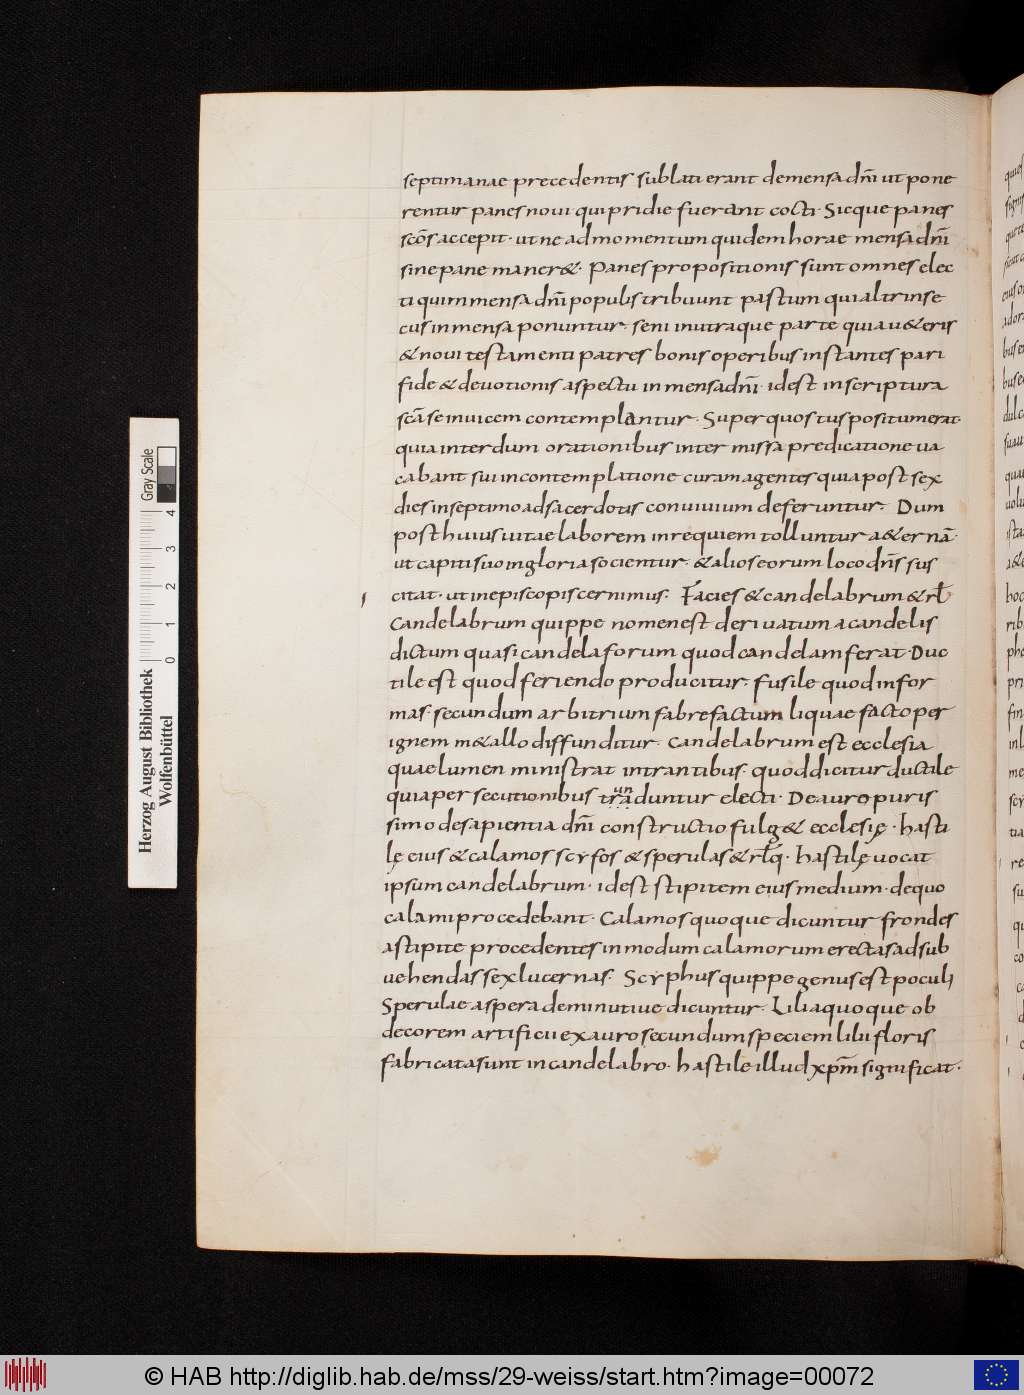 septimanae precedentis sublati erant demensa dñi ut pone
rentur panes noui qui pridie fuerant cocti · Sicque panes
scōs accepit · ut ne ad momentum quidem horae mensa dñi
sine pane maner& · Panes propositionis sunt omnes elec
ti qui in mensa dñi populis tribuunt pastum qui altrinse
cus in mensa ponuntur · seni in utraque parte quia u&eris
& noui testamenti patres bonis operibus instantes pari
fide & deuotionis aspectu in mensa dñi · idest in scriptura
scā se inuicem contemplantur · Super quos tus positum erat ·
quia interdum orationibus inter missa predicatione ua
cabant sui in contemplatione curam agentes quia post sex
dies in septimo ad sacerdotis conuiuium deferuntur · Dum
post huius uitae laborem in requiem tolluntur a&ernā ·
ut capiti suo in gloria socientur · & alios eorum loco dñs sus
citat · ut in episcopis cernimus · Facies & candelabrum & rł
Candelabrum quippe nomen est deriuatum a candelis
dictum quasi candelaforum quod candelam ferat · Duc
tile est quod feriendo producitur · fusile quod in for
mas · secundum arbitrium fabrefactum liquaefacto per
ignem m&allo diffunditur · Candelabrum est ecclesia
quae lumen ministrat intrantibus · quod dicitur ductile
quia per secutionibus tra̤duntur electi · De auro puris
un
simo de sapientia dñi constructio fulg& ecclesię · hasti
lę eius & calamos scyfos & sperulas & rłq · hastilę uocat
ipsum candelabrum · idest stipitem eius medium · de quo
calami procedebant · Calamos quoque dicuntur frondes
a stipite procedentes in modum calamorum erectas ad sub
uehendas sex lucernas · Scyphus quippe genus est poculi
Sperulae a spera deminutiue dicuntur · Lilia quoque ob
decorem artificii ex auro secundum speciem lilii floris
fabricata sunt in candelabro · hastile illud xpm̄ significat ·
Herzog August Bibliothek
Wolfenbüttel
0 1 2 3 4
Gray Scale
© HAB http://diglib.hab.de/mss/29-weiss/start.htm?image=00072